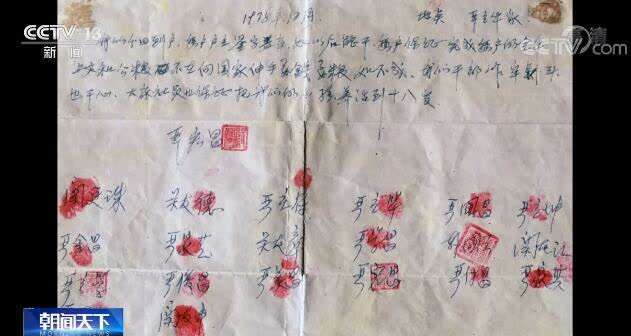 CCTV 13
CCTV.com
1978年12月 地点 严立华家
我们分田到户，每户户主签字盖章，如以后能干，每户保证完成每户的全年
上交和公粮 不在向国家伸手要钱要粮，如不成，我们干部作牢刹头
也干心，大家社员也保证把我们的小孩养活到十八岁
严宏昌
关廷珠 关友德 严立符 严立华 严国昌 严立坤
严金昌 严家芝 关友章 严学昌 关友江
严立学 严俊昌 严美昌 严宏昌 严付昌 严家其
关友申
朝闻天下